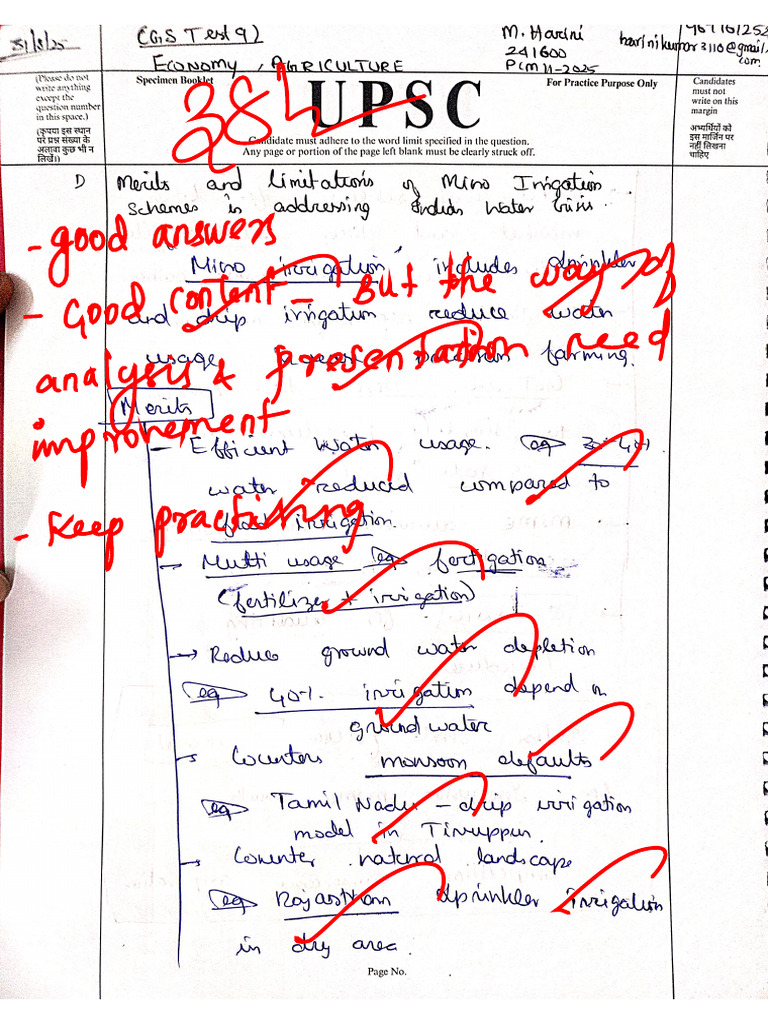 31/8/25
(GS Test 9)
Economy, Agriculture
M. Harini
241600
PCM 11-2025
harinikumar3110@gmail.com
(Please do not
write anything
except the
question number
in this space.)
(कृपया इस स्थान
पर प्रश्न संख्या के
अलावा कुछ भी न
लिखें।)
Specimen Booklet
For Practice Purpose Only
UPSC
Candidate must adhere to the word limit specified in the question.
Any page or portion of the page left blank must be clearly struck off.
Candidates
must not
write on this
margin
अभ्यर्थियों को
इस मार्जिन पर
नहीं लिखना
चाहिए
38½
1) Merits and limitations of Micro Irrigation
schemes in addressing India's Water Crisis.
- good answers
Micro irrigation includes sprinkler
- Good content - But the way of
and drip irrigation reduce water
usage farming.
analysis & presentation need
improvement
Merits
- Efficient Water usage. eg
water reduced compared to
flood irrigation.
- Keep practising
→ Multi usage eg fertigation
(fertilizer + irrigation)
→ Reduce ground water depletion
eg 60% irrigation depend on
ground water
→ Counters monsoon defaults
eg Tamil Nadu - drip irrigation
model in Tiruppur.
→ Counter natural landscape
eg Rajasthan sprinkler irrigation
in dry area.
Page No.